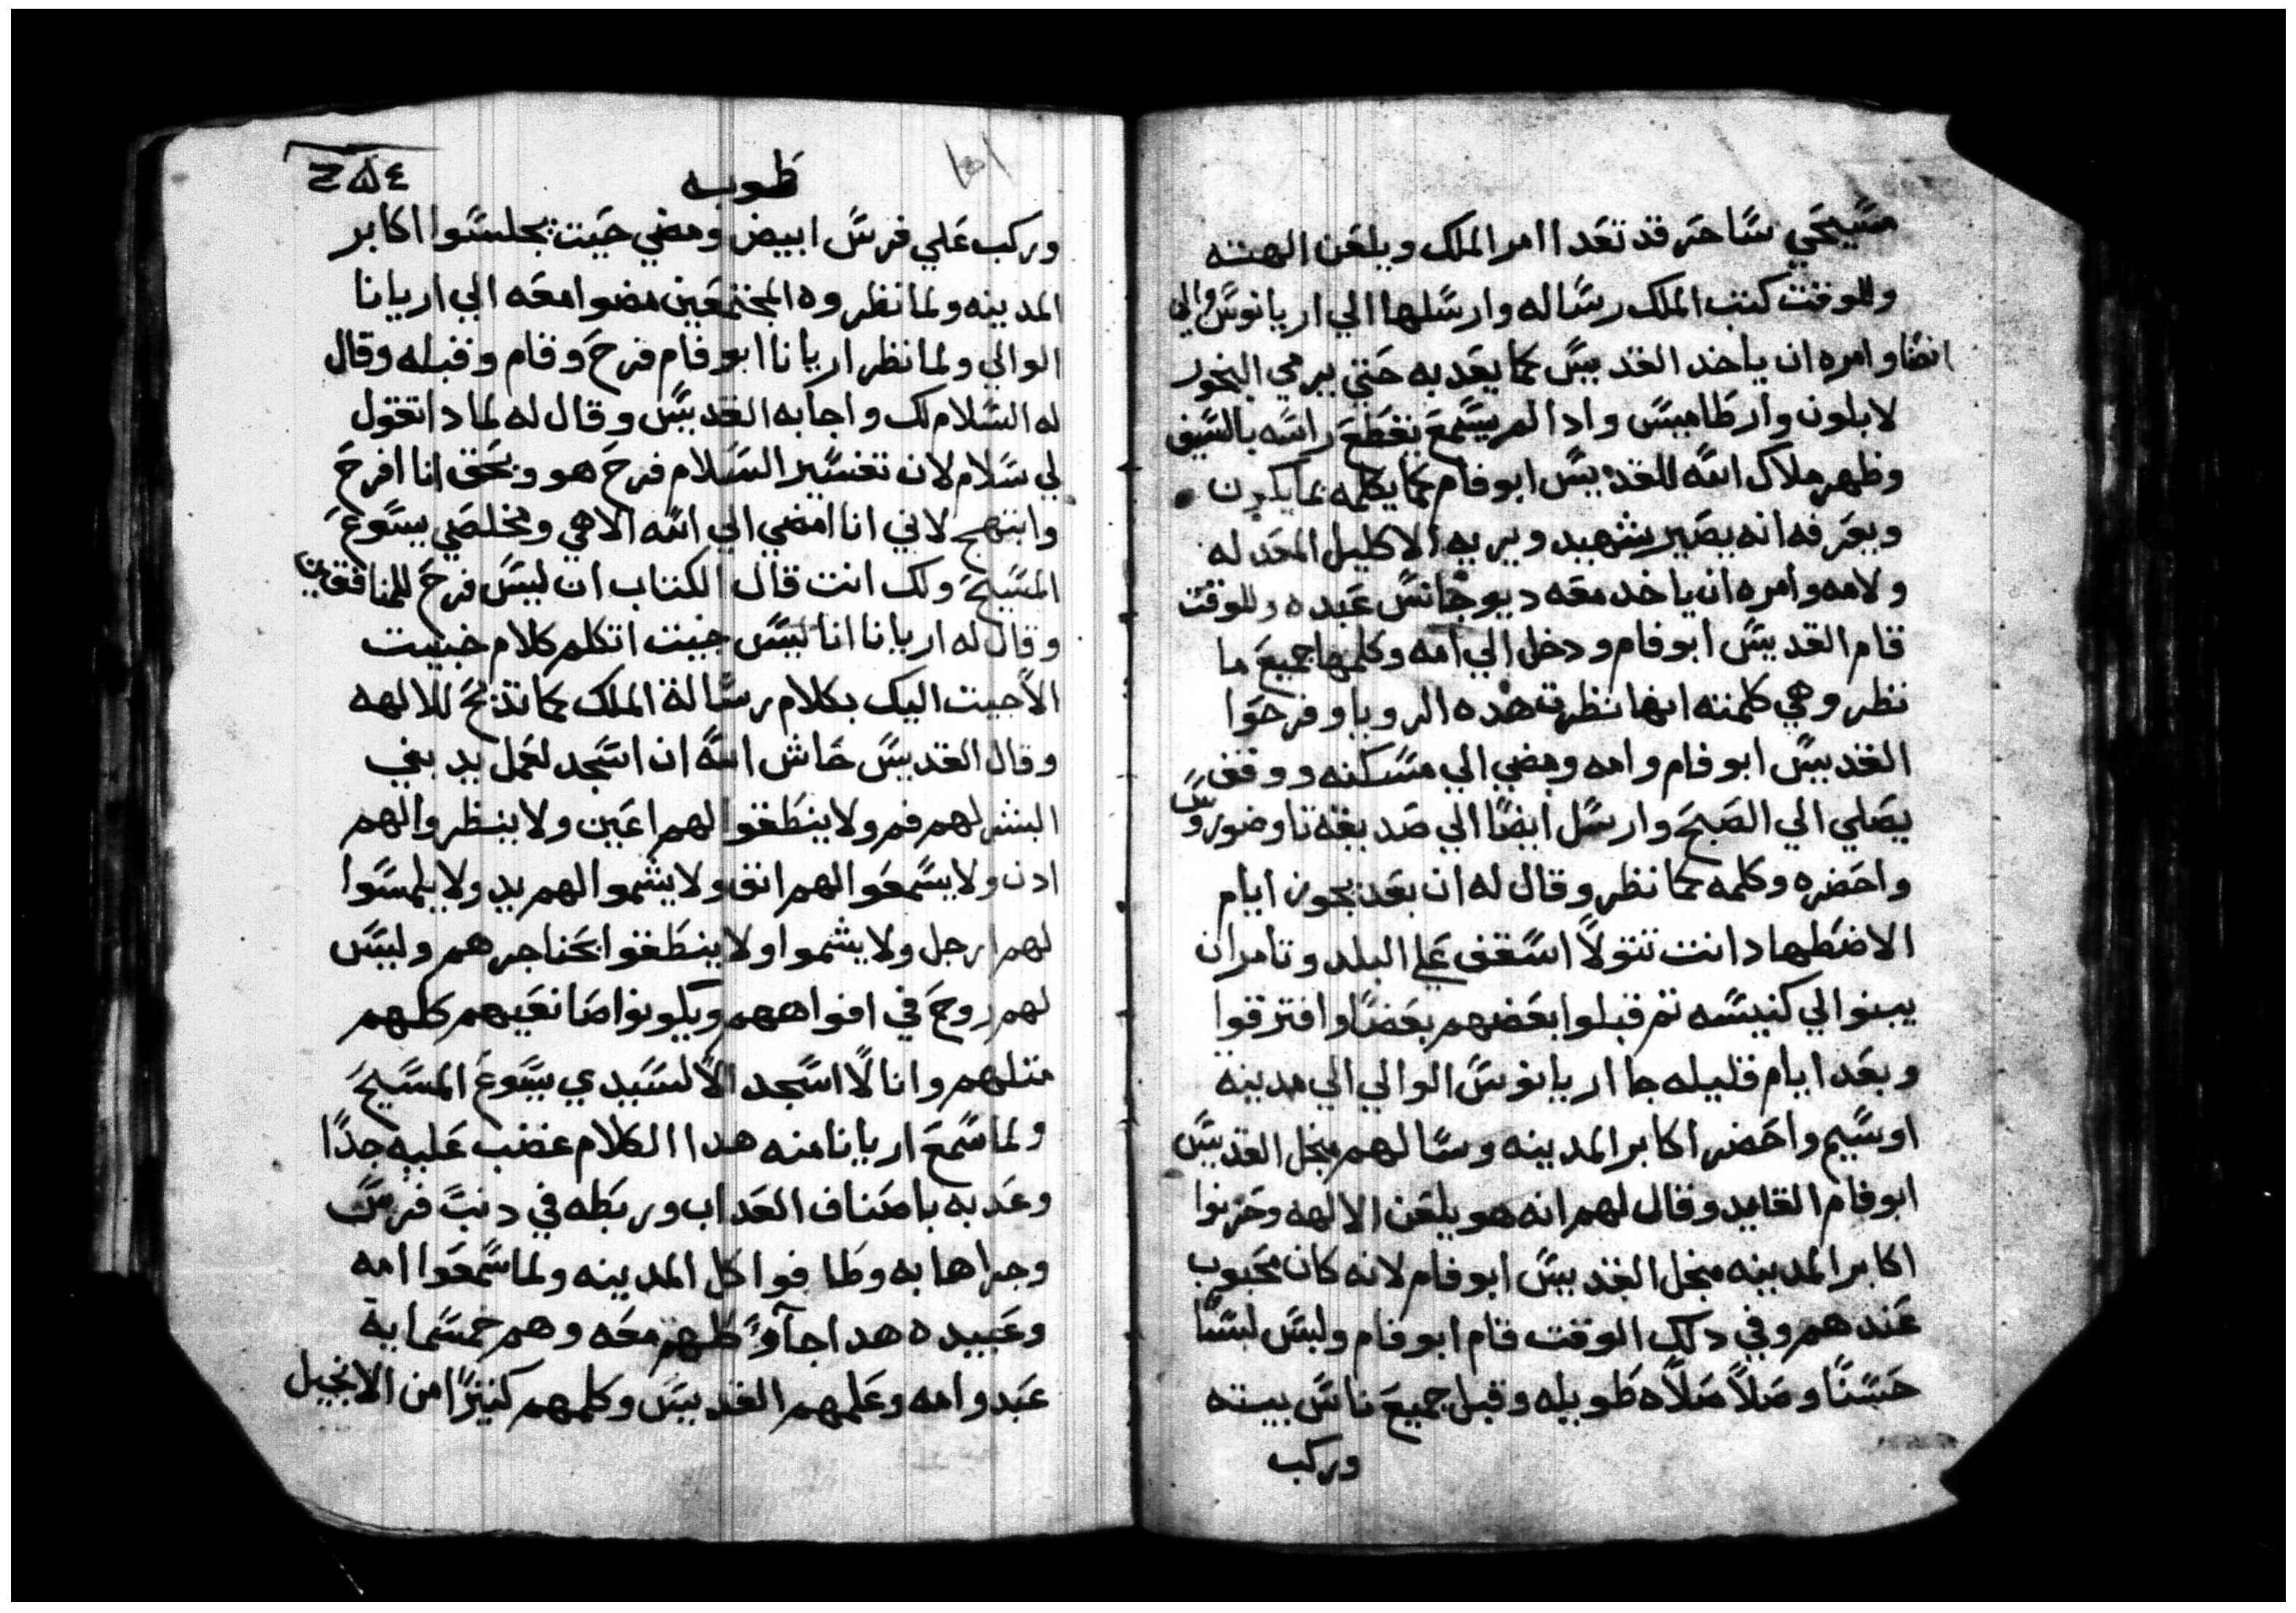 مسيحي ساحر قد تعدا امر الملك ويلعن الهته
وللوقت كتب الملك رساله وارسلها الي اريانوس والي
انصنا وامره ان ياخد القديس كما يعدبه حتي يرمي البخور
لابلون وارطاميس وادا لم يسمع تقطع راسه بالسيف
وظهر ملاك الله للقديس ابو فام كما يكلمه بما يكون
ويعرفه انه يصير شهيد ويريه الاكليل المعد له
ولامه وامره ان ياخد معه ديوجانس عبده وللوقت
قام القديس ابو فام ودخل الي امه وكلمها جميع ما
نظر وهي كلمته انها نظرت هده الرويا وفرحوا
القديس ابو فام وامه ومضي الي مسكنه ووقف
يصلي الي الصبح وارسل ايضا الي صديقه تاوضوروس
واحضره وكلمه بما نظر وقال له ان بعد يجوز ايام
الاضطهاد انت تتولا اسقف علي البلد وتامر ان
يبنوا لي كنيسه تم قبلوا بعضهم بعضا وافترقوا
وبعد ايام قليله جا اريانوس الوالي الي مدينه
اوسيم واحضر اكابر المدينه وسالهم منجل القديس
ابو فام القايد وقال لهم انه هو يلعن الالهه وحزنوا
اكابر المدينه منجل القديس ابو فام لانه كان محبوب
عندهم وفي دلك الوقت قام ابو فام ولبس لبسا
حسنا وصلا صلاه طويله وقبل جميع ناس بيته
وركب
طوبه
ⲤⲚⲆ
وركب علي فرس ابيض ومضي حيت يجلسوا اكابر
المدينه ولما نظروه المجتمعين مضوا معه الي اريانا
الوالي ولما نظر اريانا ابو فام فرح وقام وقبله وقال
له السلام لك واجابه القديس وقال له لمادا تقول
لي سلام لان تفسير السلام فرح هو وبحق انا افرح
وابتهج لاني انا امضي الي الله الاهي ومخلصي يسوع
المسيح ولك انت قال الكتاب ان ليس فرح للمنافقين
وقال له اريانا انا ليس جيت اتكلم كلام خبيت
الا جيت اليك بكلام رسالة الملك كما تدبح للالهه
وقال القديس حاش لله ان اسجد لعمل يد بني
البشر لهم فم ولا ينطقوا لهم اعين ولا ينظروا لهم
ادن ولا يسمعوا لهم انف ولا يشموا لهم يد ولا يلمسوا
لهم ارجل ولا يشموا ولا ينطقوا بحناجرهم وليس
لهم روح في افواههم ويكونوا صانعيهم كلهم
متلهم وانا لا اسجد الا لسيدي يسوع المسيح
ولما سمع اريانا منه هدا الكلام غضب عليه جدا
وعدبه باصناف العداب وربطه في دنب فرس
وجراها به وطافوا كل المدينه ولما سمعوا امه
وعبيده هدا جآو ظهر معه وهم خمسمايه
عبد وامه وعلمهم القديس وكلمهم كتيرا من الانجيل